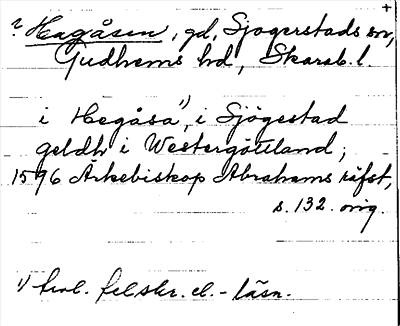 ? Hagåsen, gd, Sjogerstads sn,
Gudhems hd, Skarab. l.
i Hegåsa 1), i Sjögestad
geldh i Westergöttland;
1596 Ärkebiskop Abrahams räfst,
s. 132. orig.
1) trol. felskr. el. - läsn.